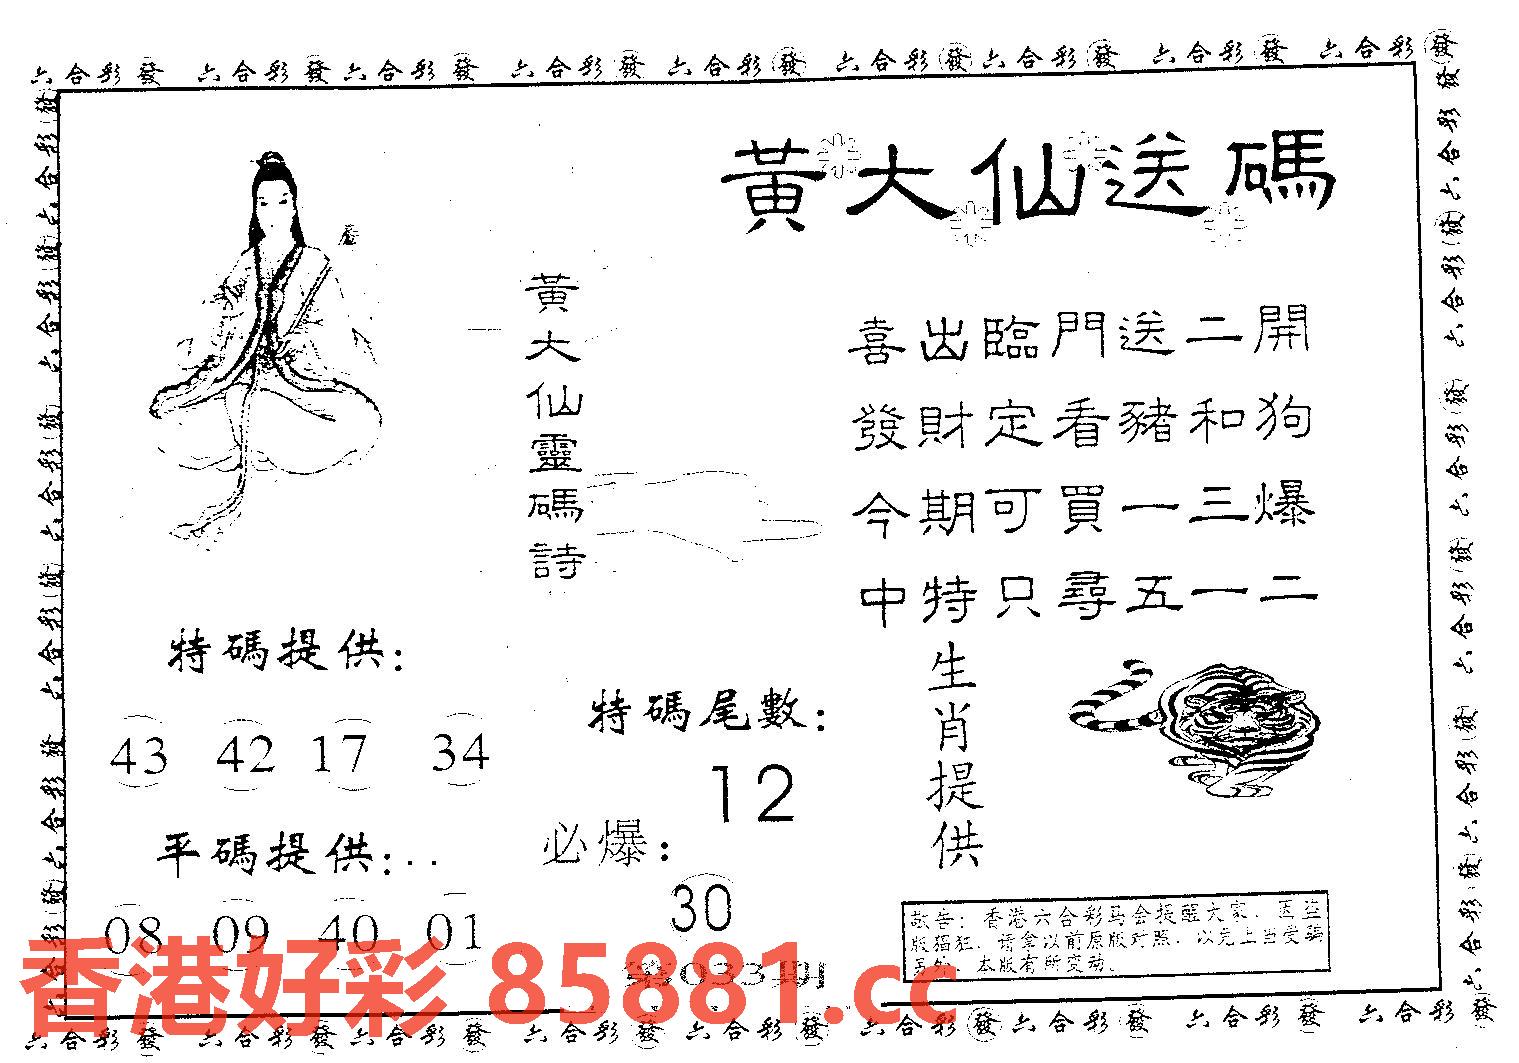 六合彩發 六合彩發六合彩發 六合彩發 六合彩發 六合彩發六合彩發 六合彩發 六合彩發
黃大仙送碼
黃大仙靈碼詩
喜出臨門送二開
發財定看豬和狗
今期可買一三爆
中特只尋五一二
生肖提供
特碼提供:
43 42 17 34
平碼提供:..
08 09 40 01
特碼尾數:
12
必爆:
30
033期
敬告: 香港六合彩马会提醒大家, 因盗
版猖狂, 请拿以前原版对照, 以免上当受骗
另外, 本版有所变动.
香港好彩 85881.cc
六合彩發 六合彩發 六合彩發 六合彩發 六合彩發 六合彩發六合彩發 六合彩發 六合彩發